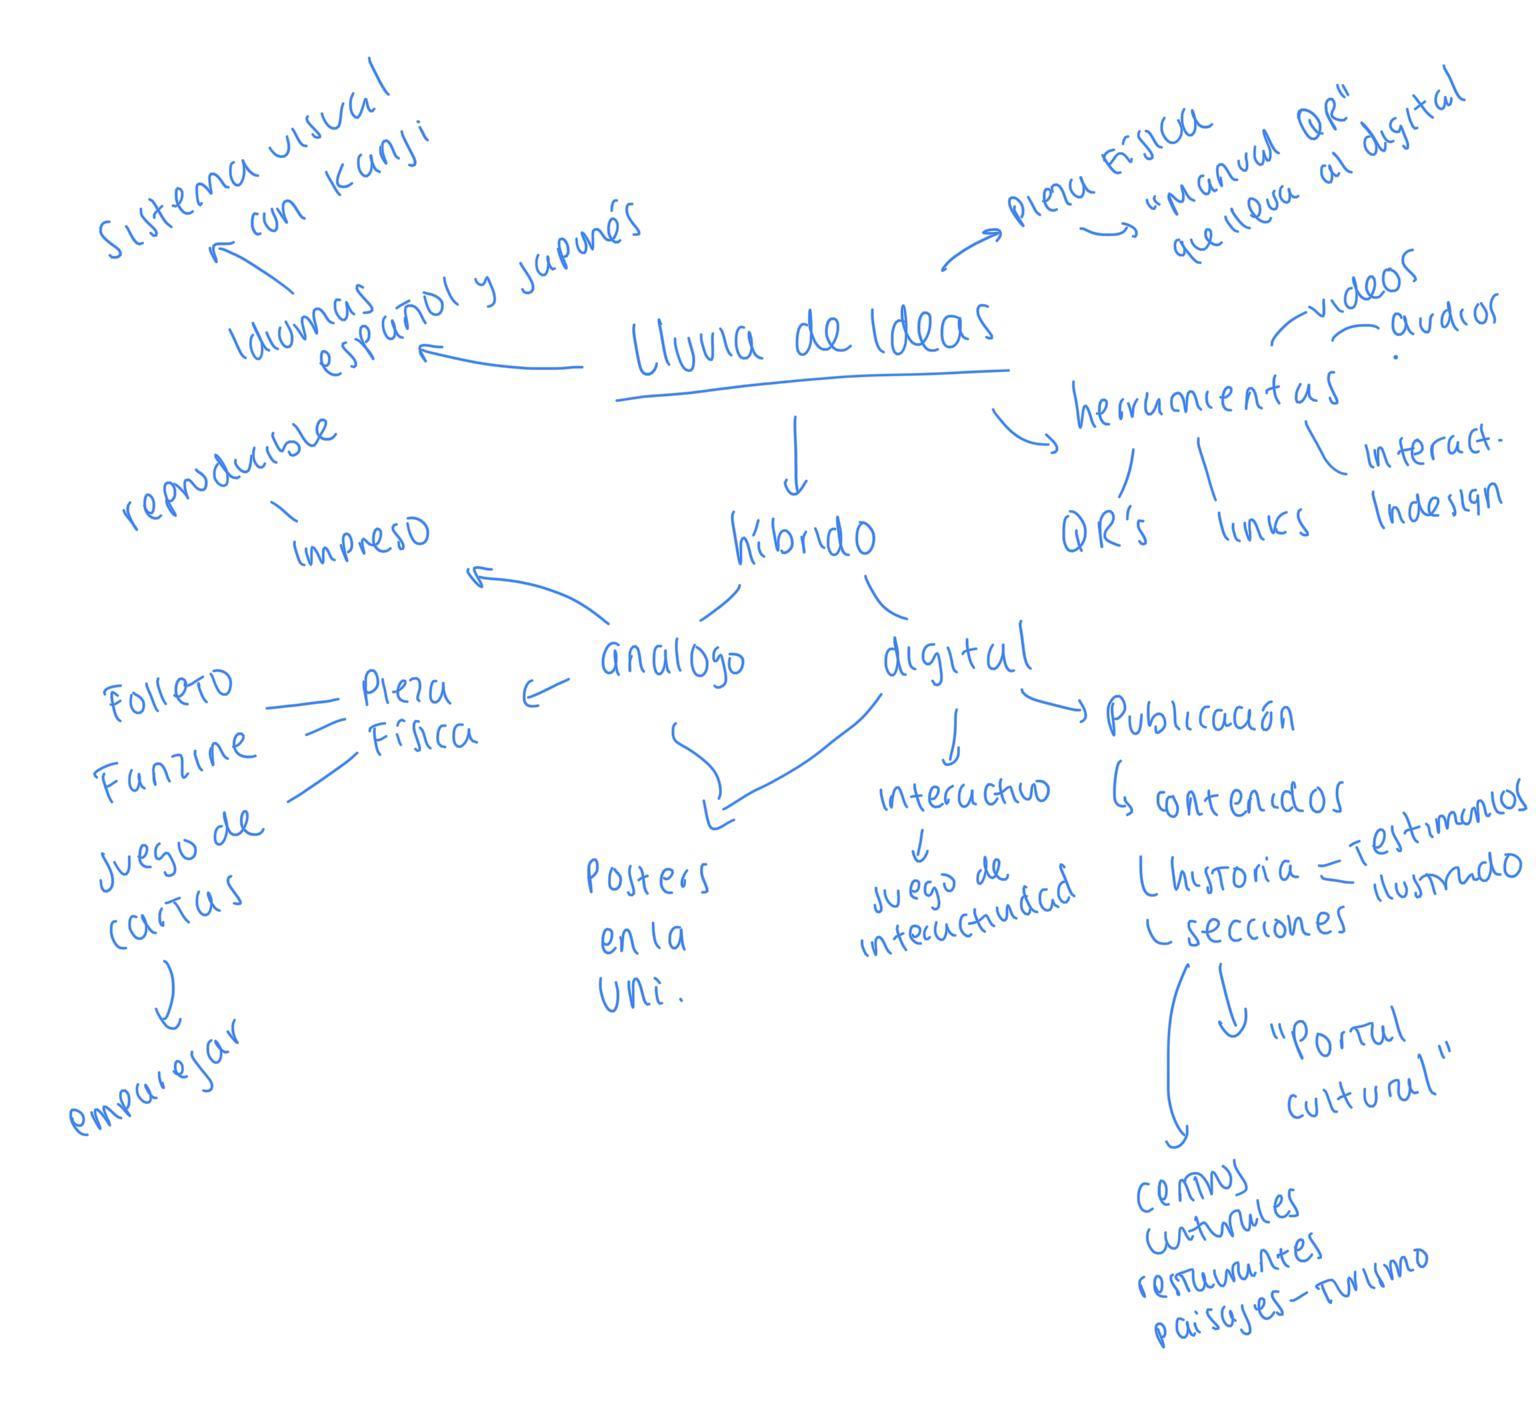 Sistema visual
con Kanji
Idiomas
español y japonés
Lluvia de Ideas
Pieza Física
"Manual QR"
que lleva al digital
herramientas
videos
audios
QR's
links
Interact.
Indesign
reproducible
impreso
híbrido
análogo
digital
Pieza
Física
Folleto
Fanzine
Juego de
cartas
emparejar
Posters
en la
Uni.
interactivo
Juego de
interactividad
Publicación
contenidos
historia = Testimonios
ilustrado
secciones
"Portal
cultural"
centros
culturales
restaurantes
paisajes - Turismo